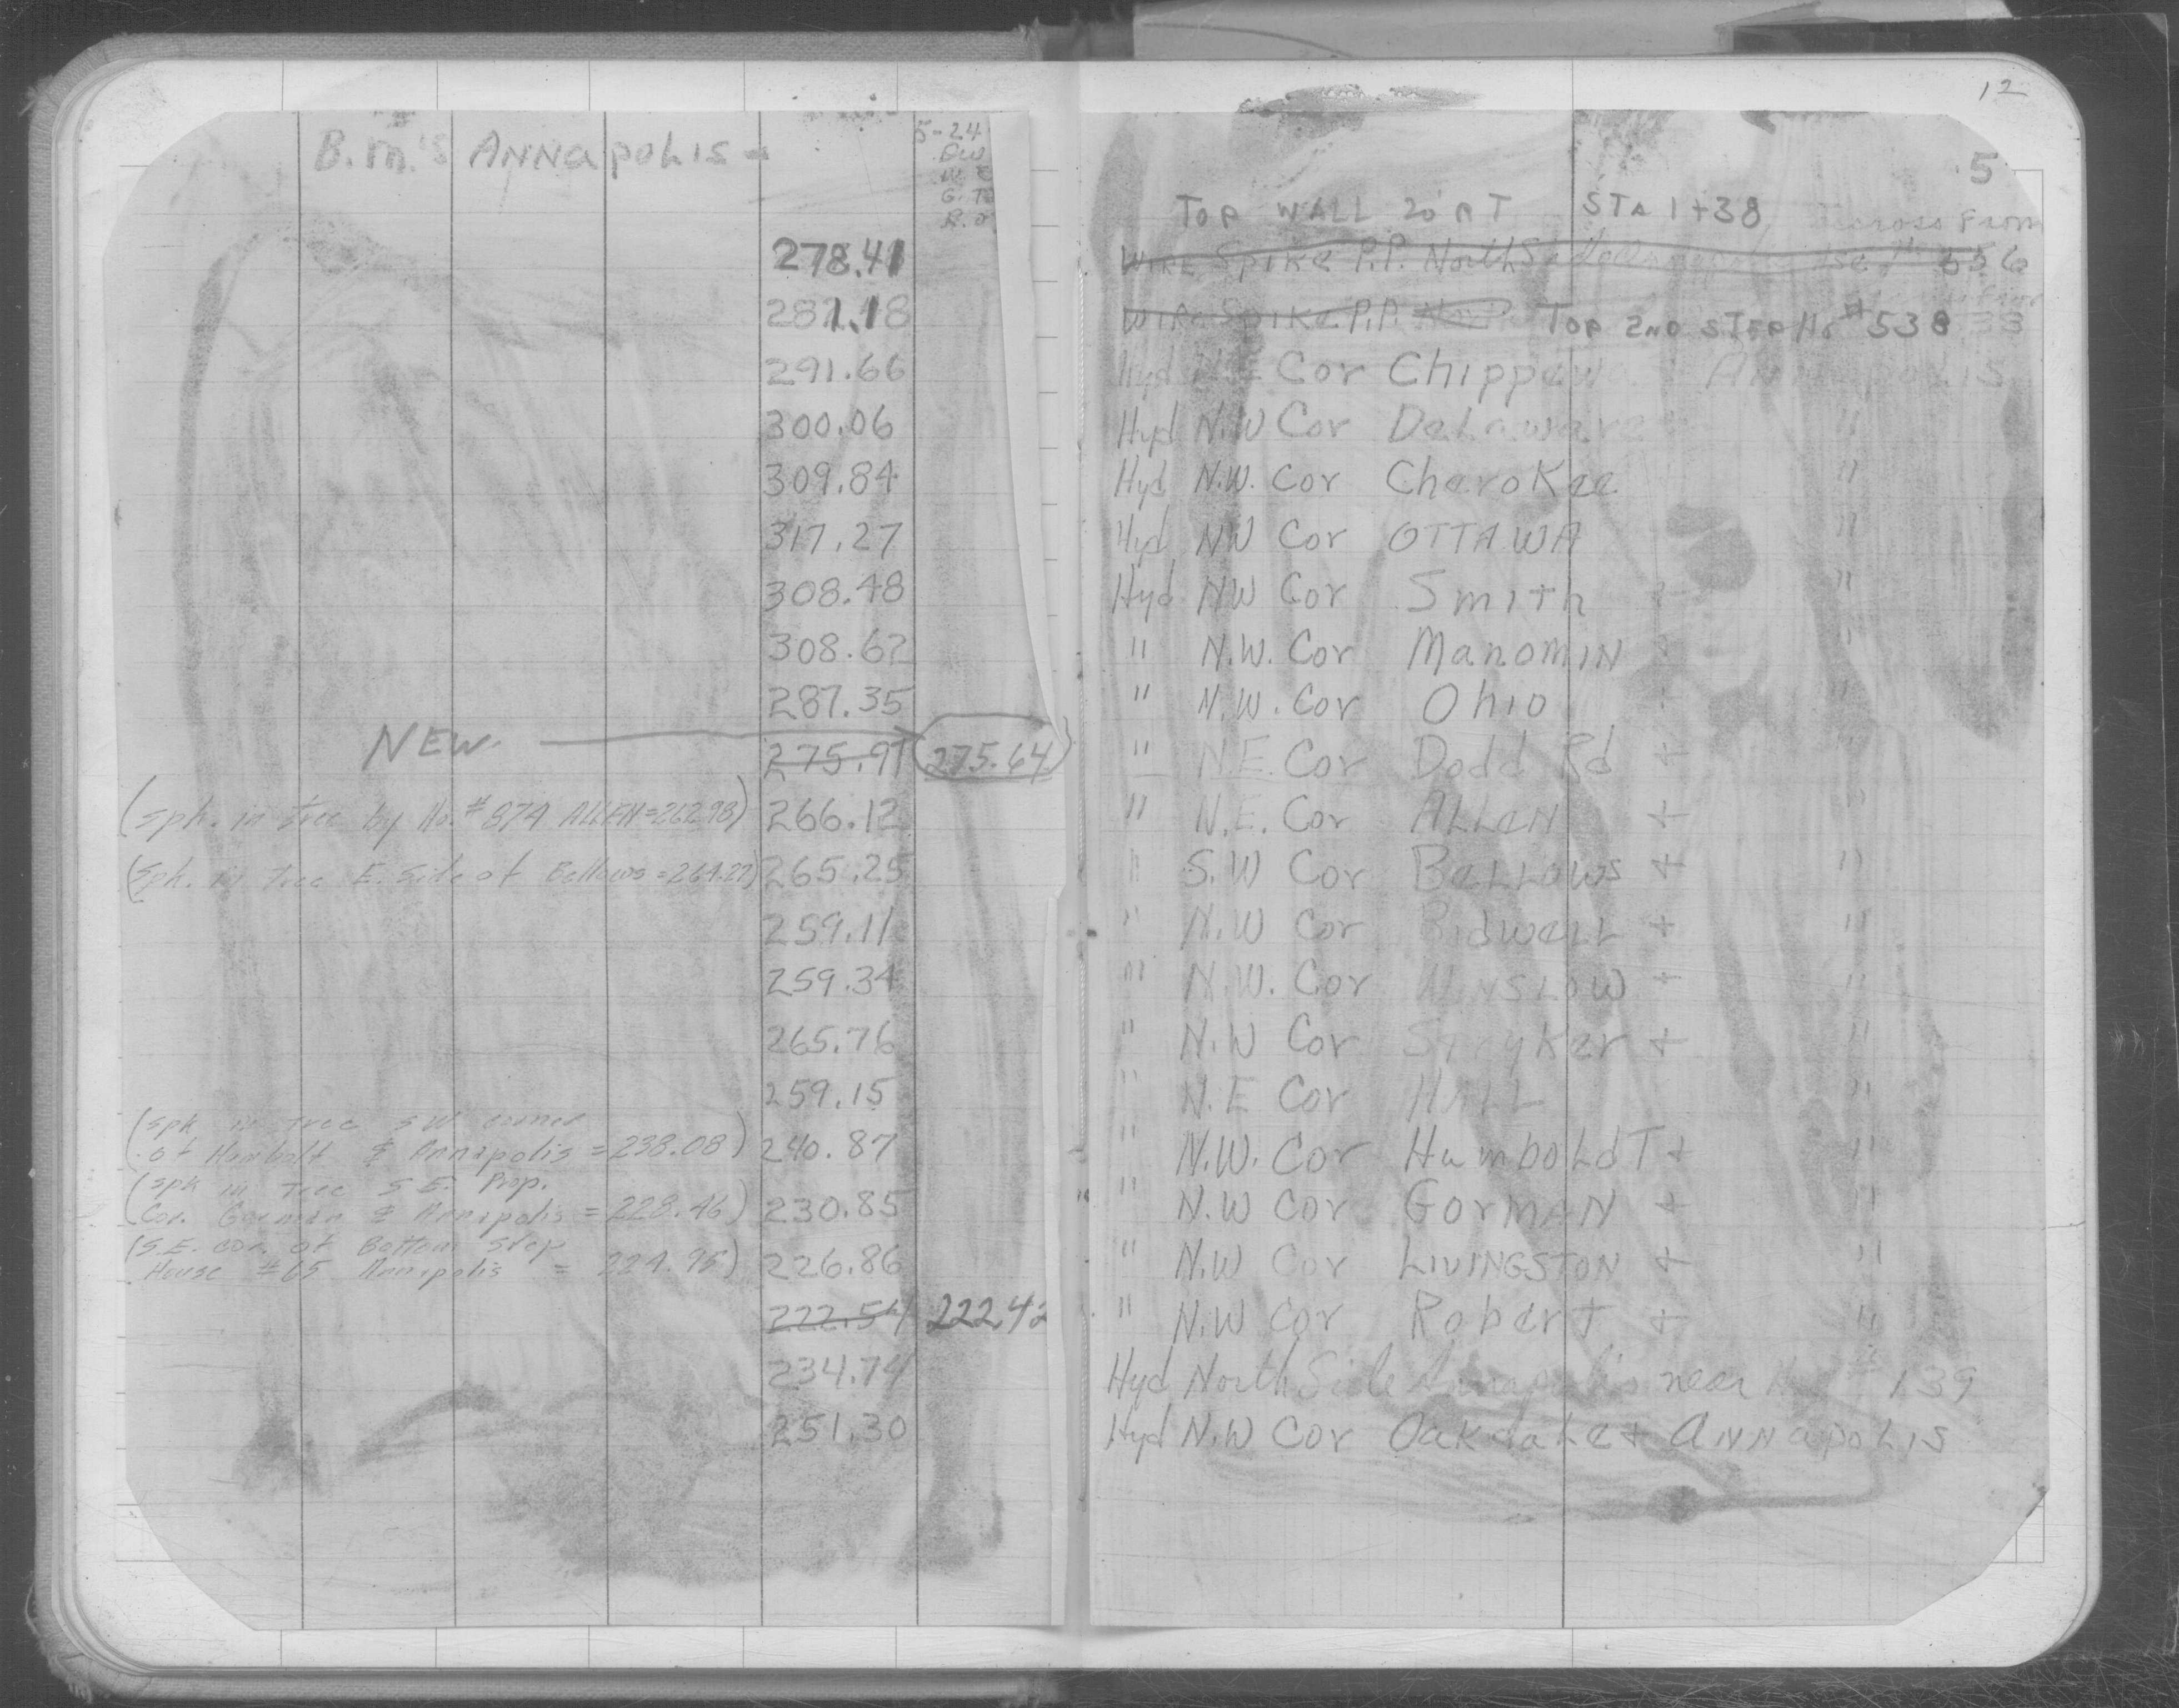 12
5
B.M.'s ANNAPOLIS -
5-24
TOP WALL 20' RT STA 1+38
278.41 WIRE Spike P.P. North Side Annapolis across from 556
281.18 WIRE Spike P.P. Nor TOP 2ND STEP Hs #538
291.66 Hyd N.E. Cor Chippewa + ANNAPOLIS
300.06 Hyd N.W Cor Delaware "
309.84 Hyd N.W. Cor Cherokee "
317.27 Hyd NW Cor OTTAWA "
308.48 Hyd NW Cor Smith + "
308.62 " N.W. Cor Manomin + "
287.35 " N.W. Cor Ohio + "
NEW. 275.97 275.64 " N.E. Cor Dodd Rd + "
(spk. in tree by No. #874 ALLEN=262.98) 266.12 " N.E. Cor ALLEN + "
(spk. in tree E. side of Bellows=264.22) 265.25 " S.W Cor BELLOWS + "
259.11 " N.W Cor Bidwell + "
259.34 " N.W. Cor WINSLOW + "
265.76 " N.W Cor Stryker + "
259.15 " N.E Cor HALL "
(spk in tree SW corner
of Humbolt & Annapolis = 238.08) 240.87 " N.W. Cor HumboldT + "
(spk in tree S.E. Prop.
Cor. Gorman & Annapolis = 228.46) 230.85 " N.W Cor GORMAN + "
(S.E. cor. of Bottom step
House #65 Annapolis = 224.95) 226.86 " N.W Cor LIVINGSTON + "
222.54 222.42 " N.W Cor Robert + "
234.74 Hyd North Side Annapolis near 139
251.30 Hyd N.W Cor Oakdale + ANNAPOLIS